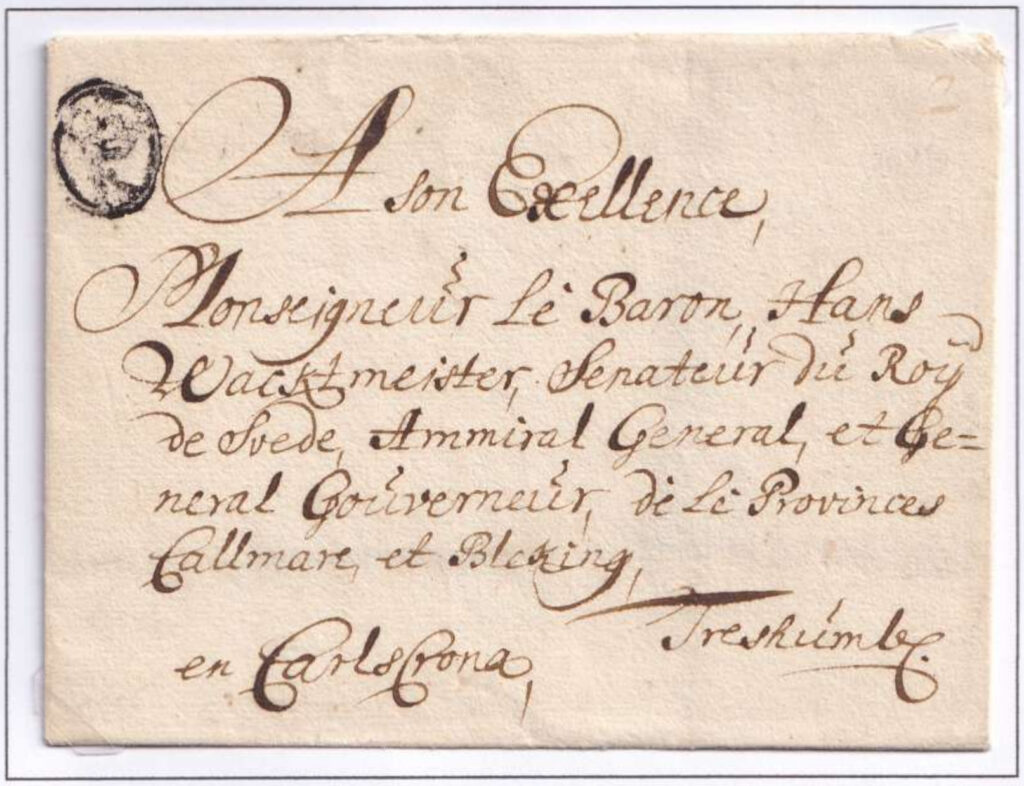 A son Exellence,
Monseigneur Le Baron, Hans
Wacktmeister, Senateur du Roÿ
de Svede, Ammiral General, et Ge=
neral Gouverneur, de Le Provinces
Callmare, et Bleking,
Treshumble.
en CarlsCrona,